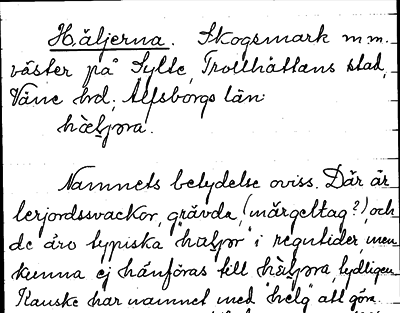 Håljerna. Skogsmark m.m.
väster på Sylte, Trollhättans stad,
Väne hd, Älfsborgs län
Namnets betydelse oviss. Där är
lerjordssvackor, grävda, (märgeltag?), och
de äro typiska "hæljor" i regntider, men
kunna ej hänföras till tydligen
Kanske har namnet med "helg" att göra.